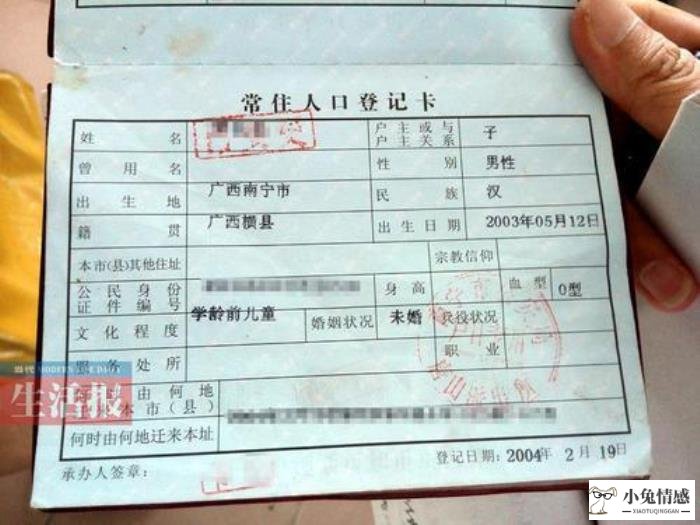 常住人口登记卡
姓名 户主或与户主关系 子
曾用名 性别 男性
出生地 广西南宁市 民族 汉
籍贯 广西横县 出生日期 2003年05月12日
本市(县)其他住址 宗教信仰
公民身份证件编号 身高 血型 O型
文化程度 学龄前儿童 婚姻状况 未婚 兵役状况
服务处所 职业
何时由何地迁来本市(县)
何时由何地迁来本址
登记日期: 2004年2月19日
承办人签章:
当代
MODERN LIFE DAILY
生活报
小兔情感
XIAOTUQINGGAN